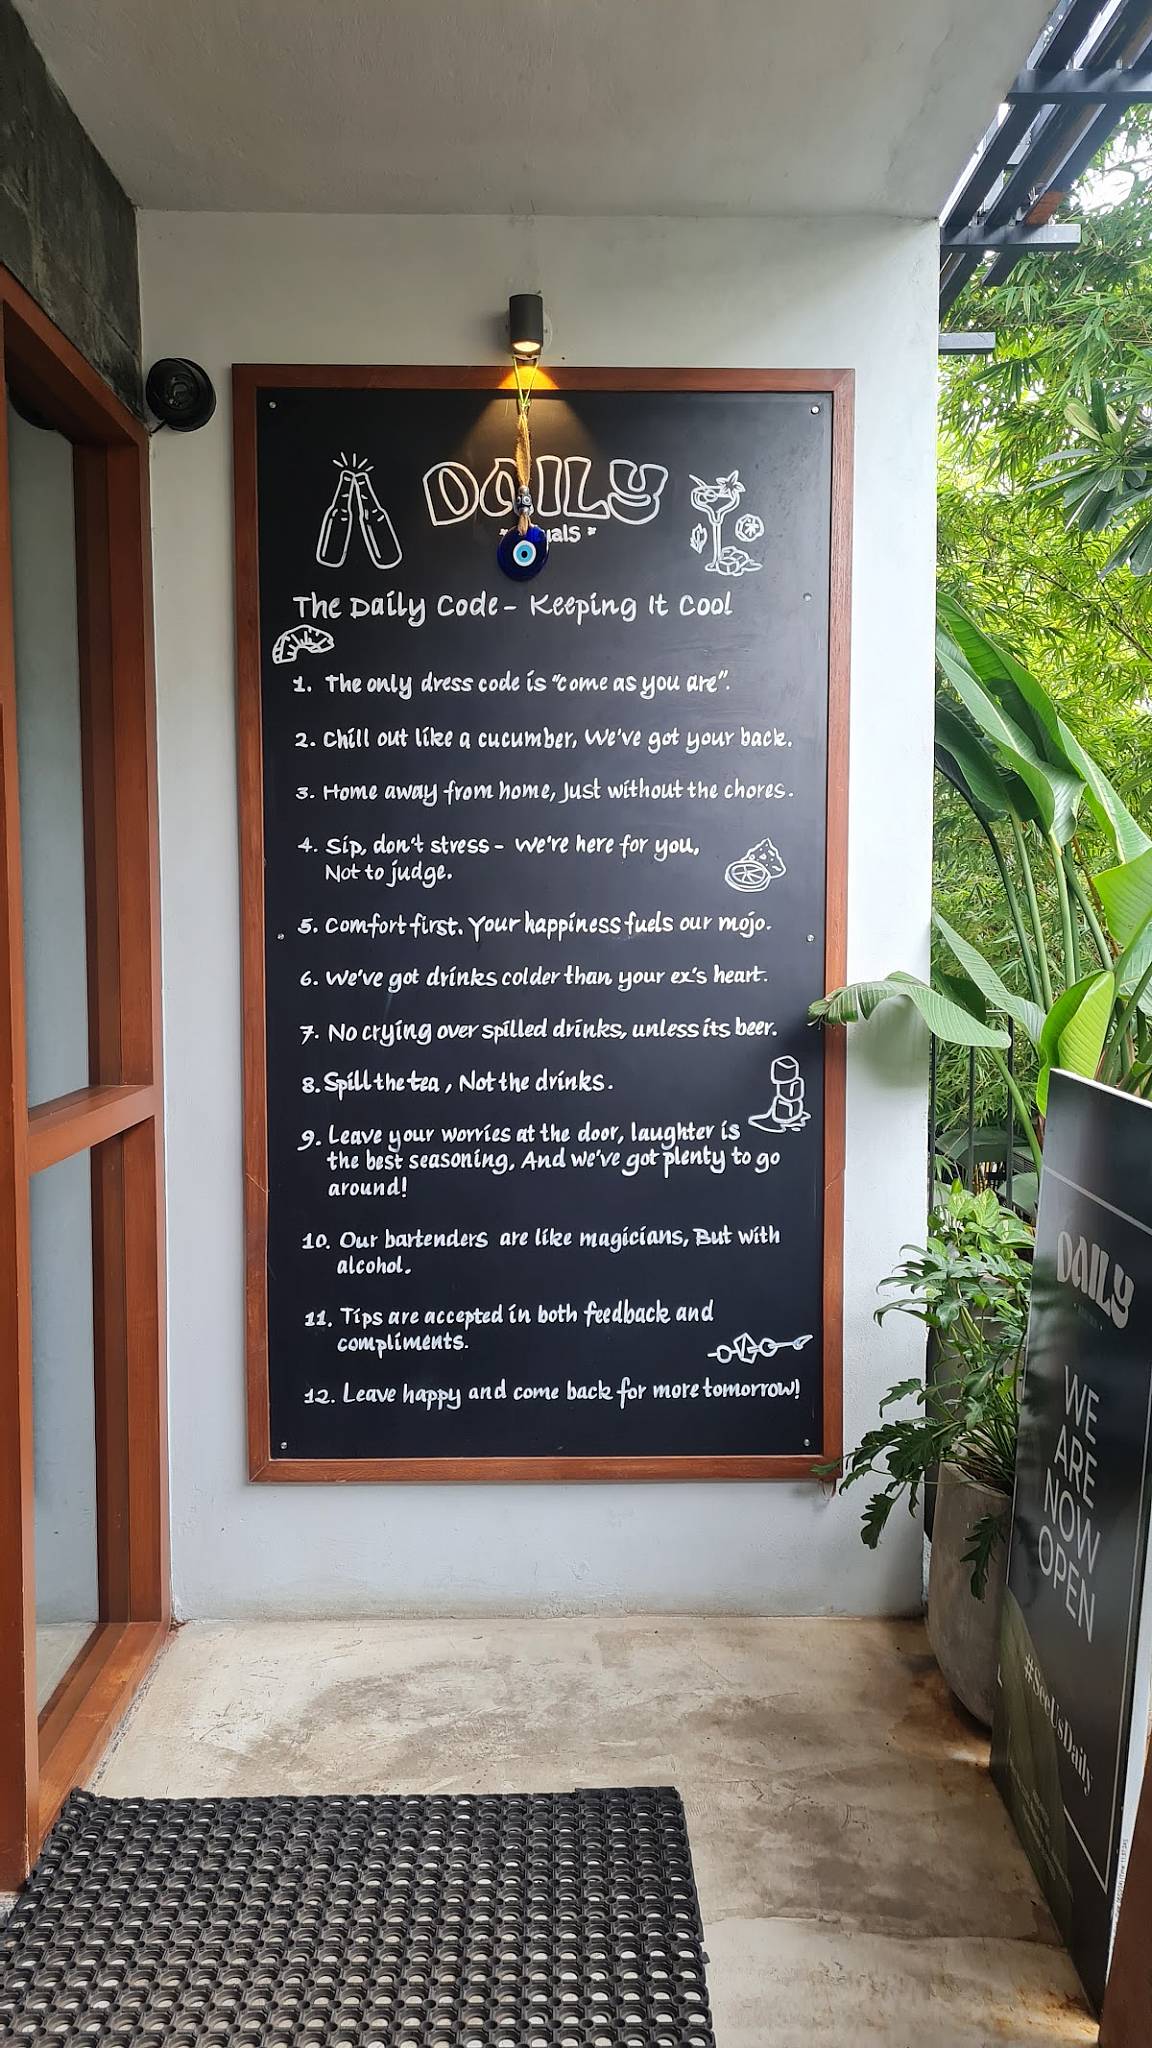 DAILY
The Daily Code - Keeping It Cool
1. The only dress code is "come as you are".
2. Chill out like a cucumber, We've got your back.
3. Home away from home, Just without the chores.
4. Sip, don't stress - We're here for you,
Not to judge.
5. Comfort first. Your happiness fuels our mojo.
6. We've got drinks colder than your ex's heart.
7. No crying over spilled drinks, unless its beer.
8. Spill the tea, Not the drinks.
9. Leave your worries at the door, laughter is
the best seasoning, And we've got plenty to go
around!
10. Our bartenders are like magicians, But with
alcohol.
11. Tips are accepted in both feedback and
compliments.
12. Leave happy and come back for more tomorrow!
DAILY
WE
ARE
NOW
OPEN
#SeeUsDaily